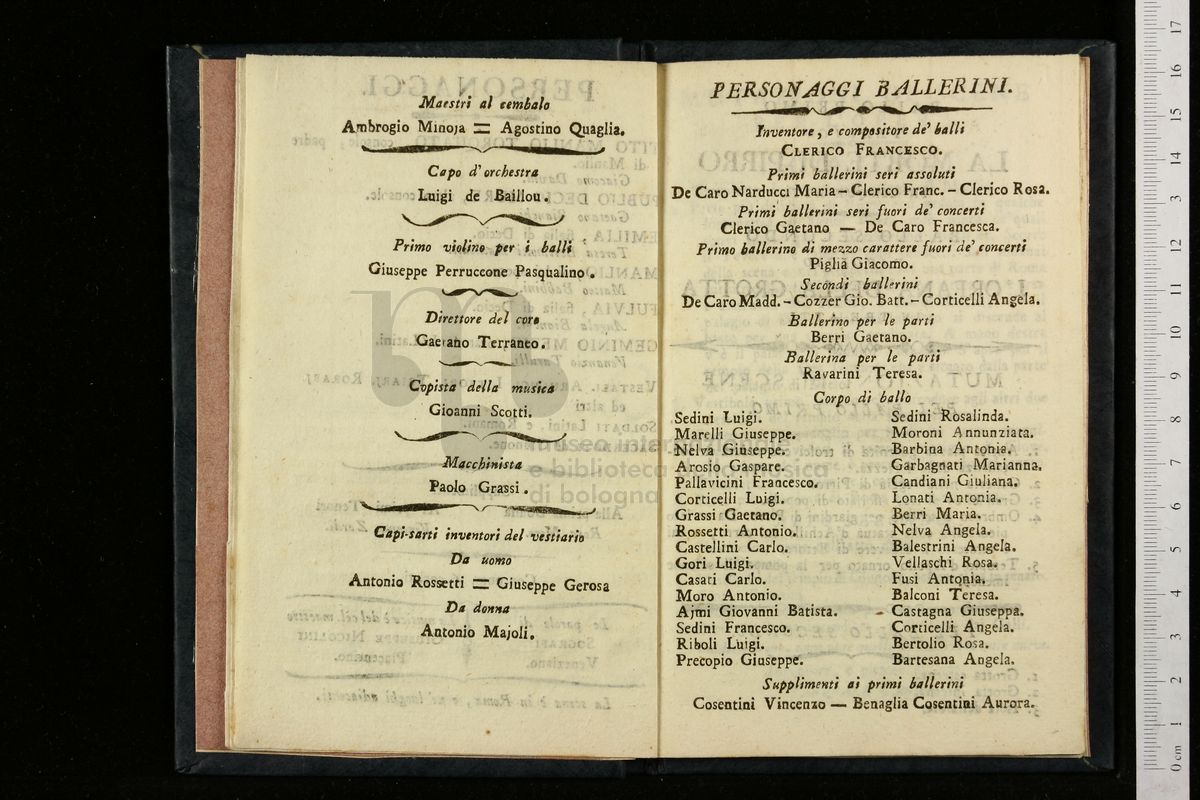 Maestri al cembalo
Ambrogio Minoja = Agostino Quaglia.
Capo d'orchestra
Luigi de Baillou.
Primo violino per i balli
Giuseppe Perruccone Pasqualino.
Direttore del coro
Gaetano Terraneo.
Copista della musica
Gioanni Scotti.
Macchinista
Paolo Grassi.
Capi-sarti inventori del vestiario
Da uomo
Antonio Rossetti = Giuseppe Gerosa
Da donna
Antonio Majoli.
PERSONAGGI BALLERINI.
Inventore, e compositore de' balli
CLERICO FRANCESCO.
Primi ballerini seri assoluti
De Caro Narducci Maria - Clerico Franc. - Clerico Rosa.
Primi ballerini seri fuori de' concerti
Clerico Gaetano — De Caro Francesca.
Primo ballerino di mezzo carattere fuori de' concerti
Piglia Giacomo.
Secondi ballerini
De Caro Madd. - Cozzer Gio. Batt. - Corticelli Angela.
Ballerino per le parti
Berri Gaetano.
Ballerina per le parti
Ravarini Teresa.
Corpo di ballo
Sedini Luigi.
Marelli Giuseppe.
Nelva Giuseppe.
Arosio Gaspare.
Pallavicini Francesco.
Corticelli Luigi.
Grassi Gaetano.
Rossetti Antonio.
Castellini Carlo.
Gori Luigi.
Casati Carlo.
Moro Antonio.
Ajmi Giovanni Batista.
Sedini Francesco.
Riboli Luigi.
Precopio Giuseppe.
Sedini Rosalinda.
Moroni Annunziata.
Barbina Antonia.
Garbagnati Marianna.
Candiani Giuliana.
Lonati Antonia.
Berri Maria.
Nelva Angela.
Balestrini Angela.
Vellaschi Rosa.
Fusi Antonia.
Balconi Teresa.
Castagna Giuseppa.
Corticelli Angela.
Bertolio Rosa.
Bartesana Angela.
Supplimenti ai primi ballerini
Cosentini Vincenzo — Benaglia Cosentini Aurora.
museo internazionale
e biblioteca della musica
di bologna
0 cm 1 2 3 4 5 6 7 8 9 10 11 12 13 14 15 16 17